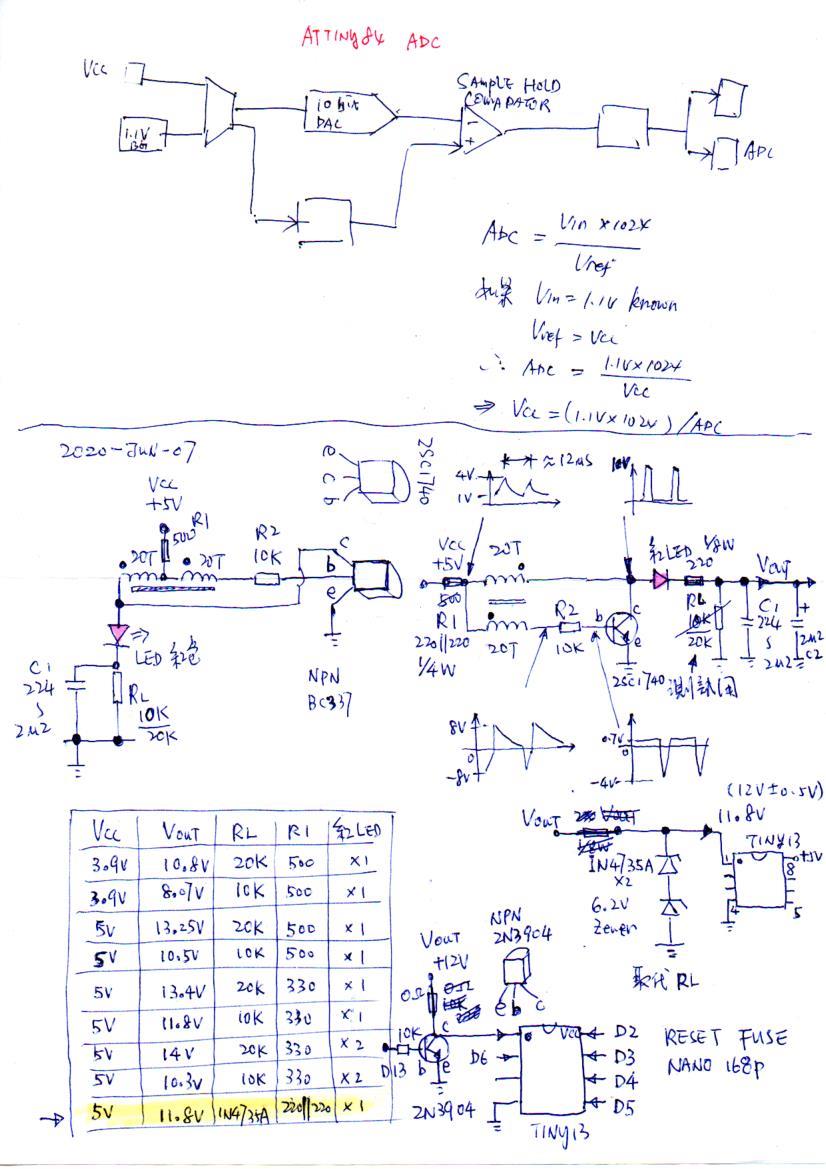 ATTINY84 ADC
VCC
1.1V
BG
10 bit
DAC
SAMPLE HOLD
COMPARATOR
-
+
ADC
ADC = Vin x 1024 / Vref
如果 Vin = 1.1V known
Vref = Vcc
∴ ADC = 1.1V x 1024 / Vcc
⇒ Vcc = (1.1V x 1024) / ADC
2020-JUN-07
Vcc
+5V
500 R1
20T
20T
R2
10K
C
b
e
2SC1740
NPN
BC337
LED 紅色
C1
224
2u2
RL
10K
20K
4V
1V
10V
Vcc
+5V
500
R1
220||220
1/4W
20T
20T
R2
10K
b
c
e
2SC1740
紅LED
1/8W
220
RL
10K
20K
Vout
C1
224
2u2
+
2u2
C2
8V
0
-8V
0.7V
0
-4V
Vcc Vout RL R1 紅LED
3.9V 10.8V 20K 500 x1
3.9V 8.07V 10K 500 x1
5V 13.25V 20K 500 x1
5V 10.5V 10K 500 x1
5V 13.4V 20K 330 x1
5V 11.8V 10K 330 x1
5V 14V 20K 330 x2
5V 10.3V 10K 330 x2
5V 11.8V 1N4735A 220||220 x1
(12V±0.5V)
11.8V
Vout
1N4735A
x2
6.2V
Zener
取代 RL
TINY13
+5V
1
8
4
5
Vout
+12V
0Ω
NPN
2N3904
e b c
10K
D13
b
c
e
2N3904
D6
Vcc
D2
D3
D4
D5
TINY13
RESET FUSE
NANO 168p